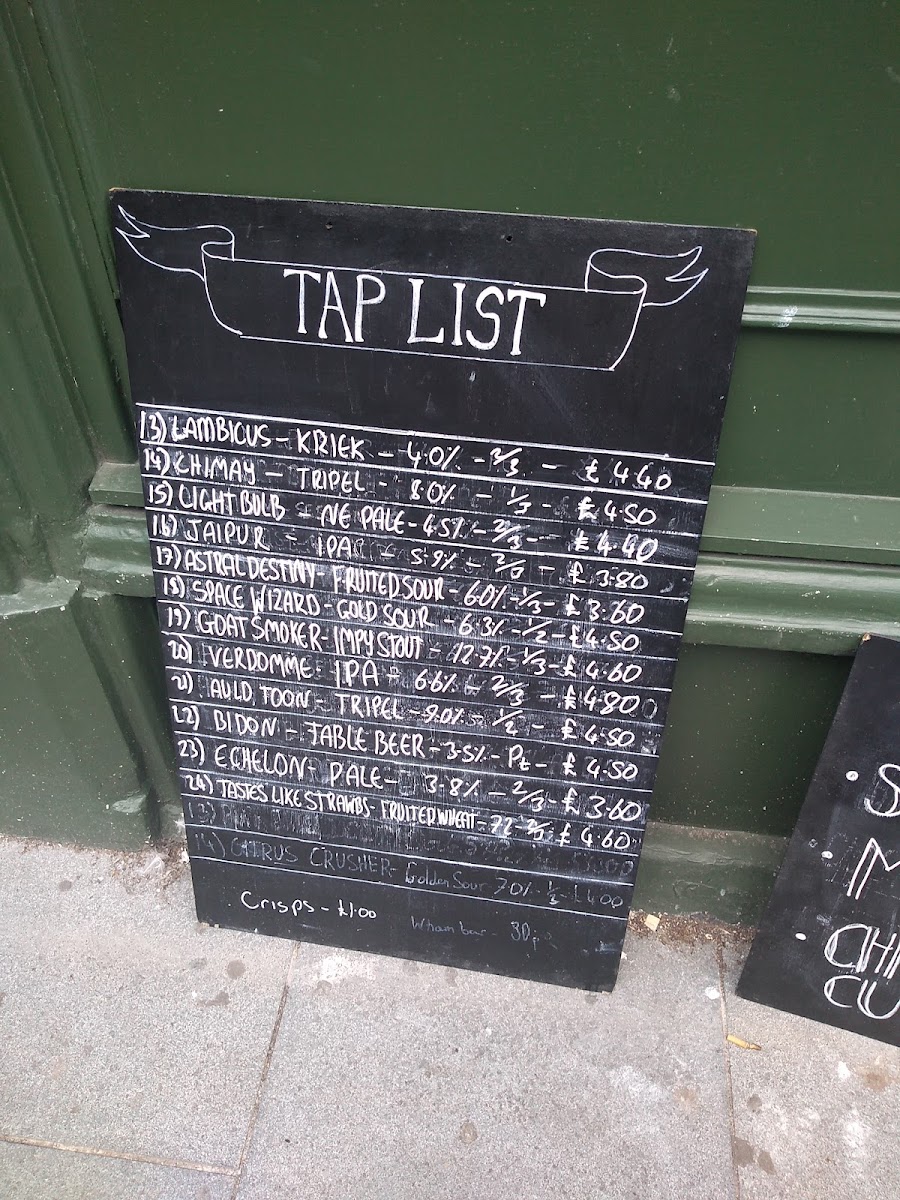 TAP LIST
13) LAMBICUS - KRIEK - 4.0% - 2/3 - £4.40
14) CHIMAY - TRIPEL - 8.0% - 1/3 - £4.50
15) LIGHT BULB - NE PALE - 4.5% - 2/3 - £4.40
16) JAIPUR - IPA - 5.9% - 2/3 - £3.80
17) ASTRAL DESTINY - FRUITED SOUR - 6.0% - 1/3 - £3.60
18) SPACE WIZARD - GOLD SOUR - 6.3% - 1/2 - £4.50
19) GOAT SMOKER - IMPY STOUT - 12.7% - 1/3 - £4.60
20) VERDOMME - IPA - 6.6% - 2/3 - £4.80
21) AULD TOON - TRIPEL - 9.0% - 1/2 - £4.50
22) BIDON - TABLE BEER - 3.5% - Pt - £4.50
23) ECHELON - PALE - 3.8% - 2/3 - £3.60
24) TASTES LIKE STRAWBS - FRUITED WHEAT - 7.2 - 2/3 £4.60
14) CITRUS CRUSHER - Golden Sour 7.0% - 1/3 - £4.00
Crisps - £1.00
Wham bar - 30p
S
M
CH
CU